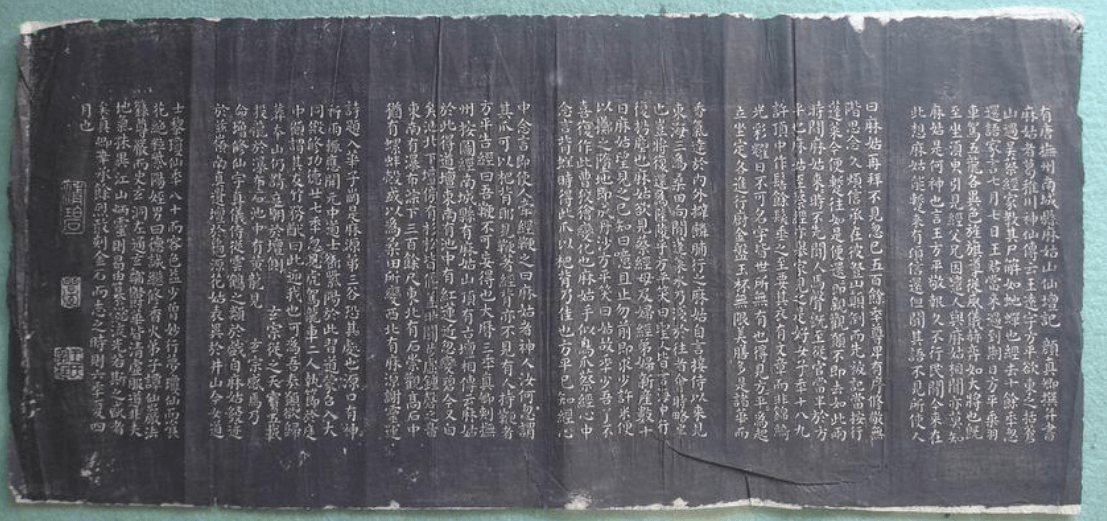 有唐撫州南城縣麻姑山仙壇記 顏真卿撰并書
麻姑者葛稚川神仙傳云王遠字方平欲東之括蒼
山過吳蔡經家教其尸解如蛇蟬也經去十餘年忽
還語家言七月七日王君當來過到期日方平乘羽
車駕五龍各異色旌旗導從威儀赫弈如大將也既
至坐須臾引見經父兄因遣人與麻姑相聞亦莫知
麻姑是何神也言王方平敬報久不行民間今來在
此想麻姑能暫來有頃信還但聞其語不見所使人
曰麻姑再拜不見忽已五百餘年尊卑有序修敬無
階思念久煩信承在彼登山顛倒而先被記當按行
蓬萊今便暫往如是便還還即親觀願不即去如此兩
時間麻姑來時不先聞人馬聲既至從官當半於方
平也麻姑至蔡經亦舉家見之是好女子年十八九
許頂中作髻餘髮垂之至要其衣有文章而非錦綺
光彩耀日不可名字皆世所無有也得見方平為起
立坐定各進行廚金盤玉杯無限美膳多是諸華而
香氣達於內外擗麟脯行之麻姑自言接侍以來見
東海三為桑田向間蓬萊水乃淺於往者會時略半
也豈將復還為陸陵乎方平笑曰聖人皆言海中行
復揚塵也麻姑欲見蔡經母及婦經弟婦新產數十
日麻姑望見之已知曰噫且止勿前即求少許米便
以擲之墮地即成丹沙方平笑曰姑故年少吾了不
喜復作此曹狡獪變化也麻姑手似鳥爪蔡經心中
念言背蛘時得此爪以杷背乃佳也方平已知經心
中念言即使人牽經鞭之曰麻姑者神人汝何忽謂
其爪可以杷背耶見鞭著經背亦不見有人持鞭者
方平告經曰吾鞭不可妄得也大曆三年真卿刺撫
州按圖經南城縣有麻姑山頂有古壇相傳云麻姑
於此得道壇東南有池中有紅蓮近忽變碧今又白
矣池北下壇傍有杉松皆偃蓋時聞步虛鐘磬之音
東南有瀑布淙下三百餘尺東北有石崇觀高石中
猶有螺蚌殼或以為桑田所變西北有麻源謝靈運
詩題入華子岡是麻源第三谷恐其處也源口有神
祈雨輒應開元中道士鄧紫陽於此習道蒙召入大
同殿修功德廿七年忽見虎駕龍車二人執節於庭
中顧謂其友竹務猷曰此迎我也可為吾奏願欲歸
葬本山仍請立廟於壇側 玄宗從之天寶五載
投龍於瀑布石池中有黃龍見 玄宗感焉乃
命增修仙宇真儀侍從雲鶴之類於戲自麻姑發迹
於茲嶺南真遺壇於龜源花姑表異於井山今女道
士黎瓊仙年八十而容色益少曾妙行夢瓊仙而餐
花絕粒紫陽姪男曰德誠繼修香火弟子譚仙巖法
籙尊嚴而史玄洞左通玄鄒鬱華皆清虛服道非夫
地氣殊異江山炳靈則曷由纂懿流光若斯之盛者
矣真卿幸承餘烈敢刻金石而志之時則六年夏四
月也